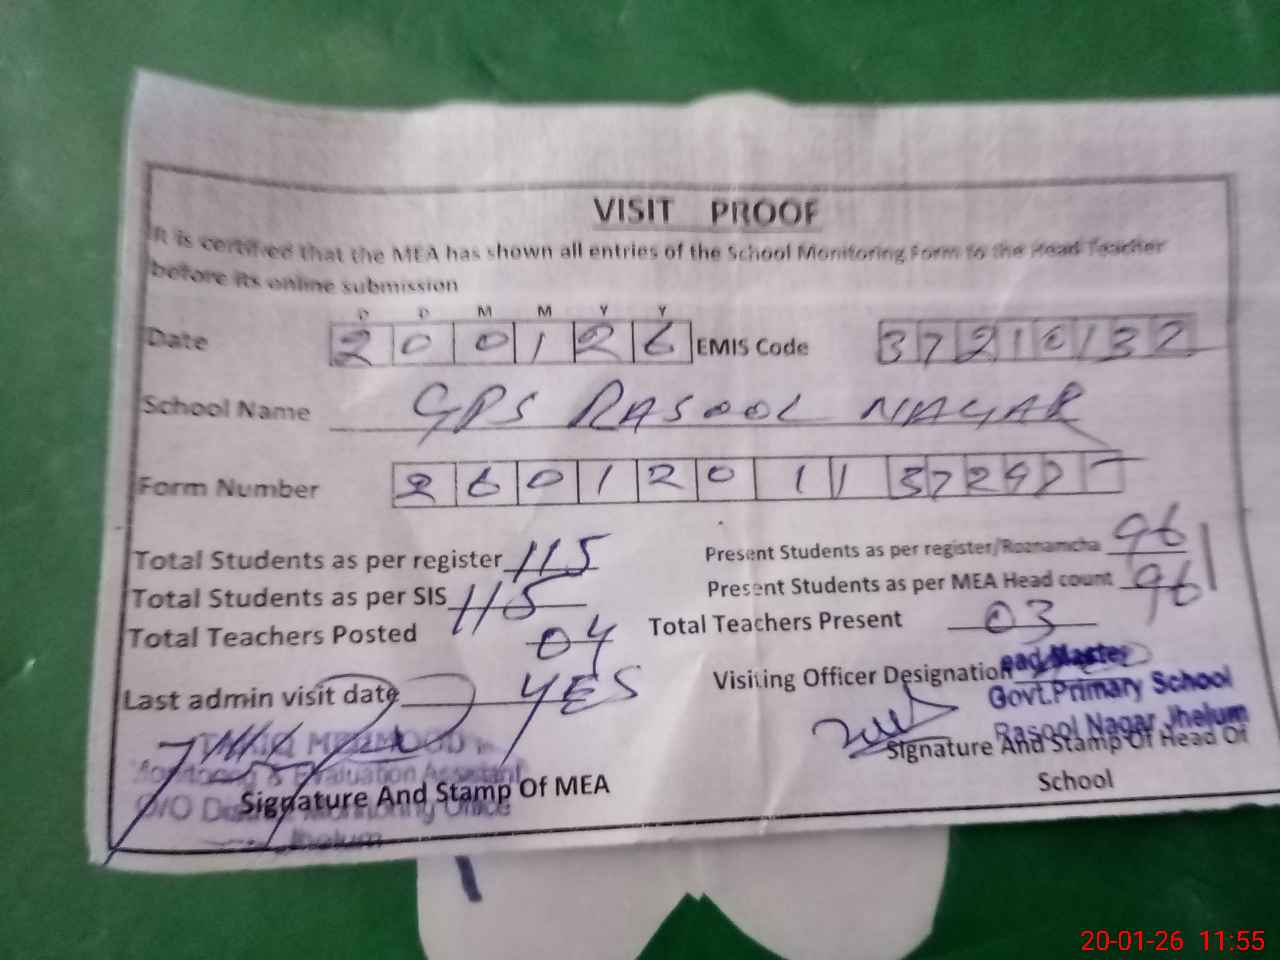 VISIT PROOF
It is certified that the MEA has shown all entries of the School Monitoring Form to the Head Teacher
before its online submission
D D M M Y Y
Date 2 0 0 1 2 6 EMIS Code 3 7 2 1 0 1 3 2
School Name GPS RASOOL NAGAR
Form Number 2 6 0 1 2 0 1 1 3 7 2
Total Students as per register 115 Present Students as per register/Roznamcha 96
Total Students as per SIS 115 Present Students as per MEA Head count 96
Total Teachers Posted 04 Total Teachers Present 03
Last admin visit date YES Visiting Officer Designation
Head Master
Govt. Primary School
Rasool Nagar Jhelum
Signature And Stamp Of Head Of
School
MEHMOOD
Monitoring & Evaluation Assistant
O/O District Monitoring Office
Jhelum
Signature And Stamp Of MEA
20-01-26 11:55